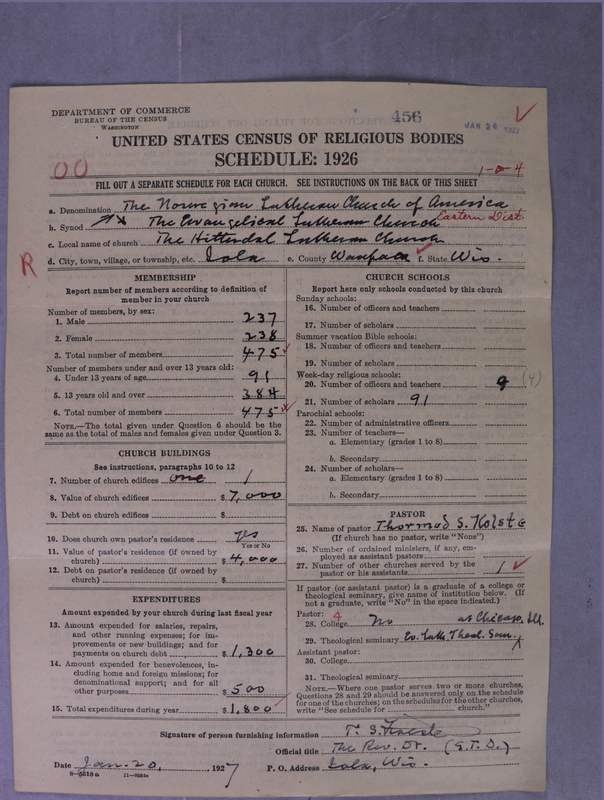 DEPARTMENT OF COMMERCE
BUREAU OF THE CENSUS
WASHINGTON
456
JAN 24 1927
UNITED STATES CENSUS OF RELIGIOUS BODIES
SCHEDULE: 1926
00
1-0-4
FILL OUT A SEPARATE SCHEDULE FOR EACH CHURCH. SEE INSTRUCTIONS ON THE BACK OF THIS SHEET
a. Denomination The Norwegian Lutheran Church of America
b. Synod The Evangelical Lutheran Church Eastern Dist
c. Local name of church The Hitterdal Lutheran Church
R
d. City, town, village, or township, etc. Iola e. County Waupaca f. State Wis.
MEMBERSHIP
Report number of members according to definition of
member in your church
Number of members, by sex:
1. Male 237
2. Female 238
3. Total number of members 475
Number of members under and over 13 years old:
4. Under 13 years of age 91
5. 13 years old and over 384
6. Total number of members 475
NOTE.—The total given under Question 6 should be the
same as the total of males and females given under Question 3.
CHURCH BUILDINGS
See instructions, paragraphs 10 to 12
7. Number of church edifices one 1
8. Value of church edifices $ 7,000
9. Debt on church edifices $
10. Does church own pastor's residence yes
Yes or No
11. Value of pastor's residence (if owned by
church) $ 4,000
12. Debt on pastor's residence (if owned by
church) $
EXPENDITURES
Amount expended by your church during last fiscal year
13. Amount expended for salaries, repairs,
and other running expenses; for im-
provements or new buildings; and for
payments on church debt $ 1,300
14. Amount expended for benevolences, in-
cluding home and foreign missions; for
denominational support; and for all
other purposes $ 500
15. Total expenditures during year $ 1,800
CHURCH SCHOOLS
Report here only schools conducted by this church
Sunday schools:
16. Number of officers and teachers
17. Number of scholars
Summer vacation Bible schools:
18. Number of officers and teachers
19. Number of scholars
Week-day religious schools:
20. Number of officers and teachers (4)
21. Number of scholars 91
Parochial schools:
22. Number of administrative officers
23. Number of teachers—
a. Elementary (grades 1 to 8)
b. Secondary
24. Number of scholars—
a. Elementary (grades 1 to 8)
b. Secondary
PASTOR
25. Name of pastor Thormod S. Kolste
(If church has no pastor, write "None")
26. Number of ordained ministers, if any, em-
ployed as assistant pastors
27. Number of other churches served by the
pastor or his assistants 1
If pastor (or assistant pastor) is a graduate of a college or
theological seminary, give name of institution below. (If
not a graduate, write "No" in the space indicated.)
Pastor: 4
28. College No at Chicago, Ill.
29. Theological seminary Ev. Luth. Theol. Sem.
Assistant pastor:
30. College
31. Theological seminary
NOTE.—Where one pastor serves two or more churches,
Questions 28 and 29 should be answered only on the schedule
for one of the churches; on the schedules for the other churches,
write "See schedule for church."
Signature of person furnishing information T. S. Kolste
Official title The Rev. Dr. (S.T.D.)
Date Jan. 20, 1927 P. O. Address Iola, Wis.
8—5518a 11—9084